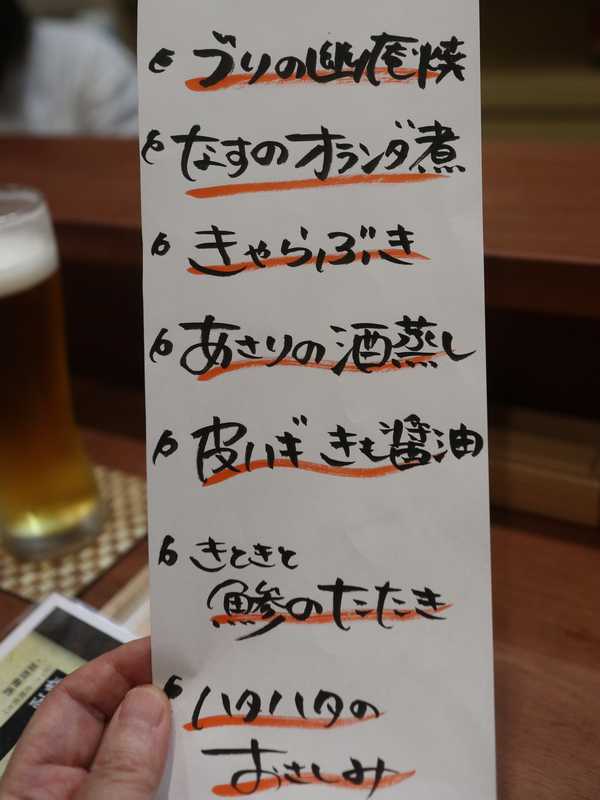 ブリの幽庵焼
なすのオランダ煮
きゃらぶき
あさりの酒蒸し
皮ハギ きも醤油
きときと
鯵のたたき
ハタハタの
おさしみ